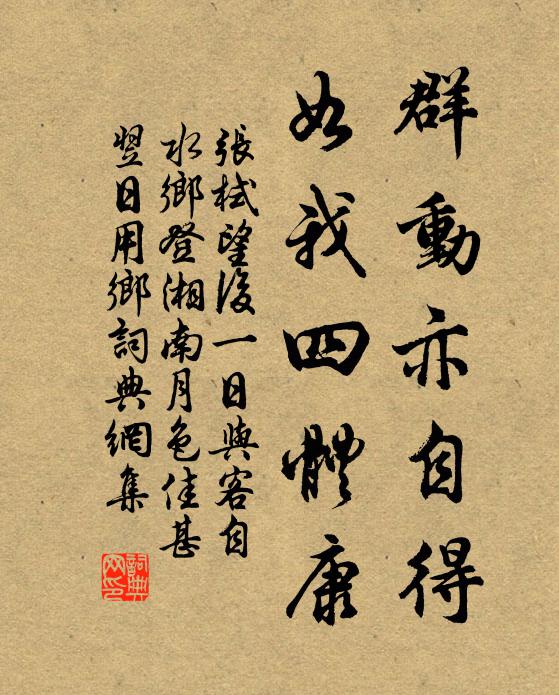 群動亦自得
如我四體康
張栻望後一日與客自
水鄉登湘南月色佳甚
翌日用鄉詞典網集
詞典網印